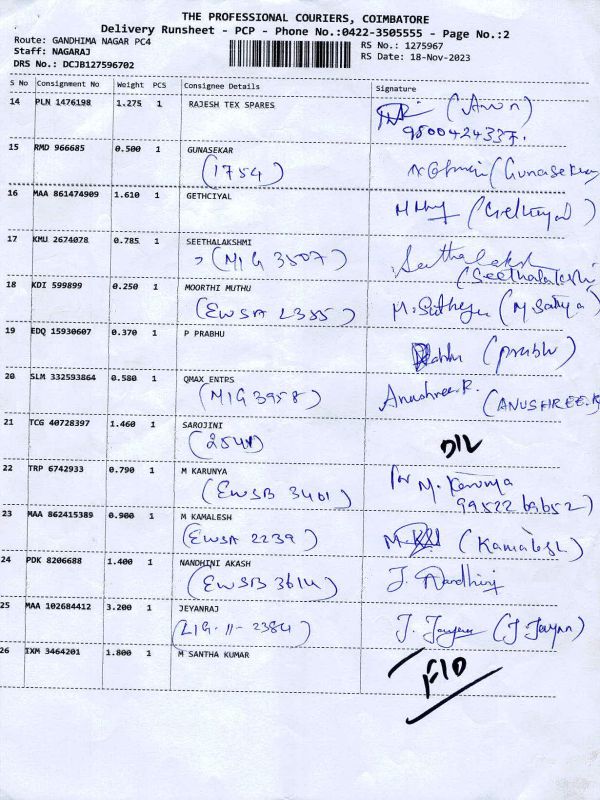 THE PROFESSIONAL COURIERS, COIMBATORE
Delivery Runsheet - PCP - Phone No.:0422-3505555 - Page No.:2
Route: GANDHIMA NAGAR PC4
RS No.: 1275967
Staff: NAGARAJ
RS Date: 18-Nov-2023
DRS No.: DCJB127596702
S No Consignment No Weight PCS Consignee Details Signature
14 PLN 1476198 1.275 1 RAJESH TEX SPARES
15 RMD 966685 0.500 1 GUNASEKAR
(1754) (Gunasekar
16 MAA 861474909 1.610 1 GETHCIYAL
17 KMU 2674078 0.785 1 SEETHALAKSHMI
(MIG 3507) (Seethalakshi
18 KDI 599899 0.250 1 MOORTHI MUTHU
(EWSA 2385) (M. Sathya)
19 EDQ 15930607 0.370 1 P PRABHU
(prabhu)
20 SLM 332593864 0.580 1 QMAX ENTRS
(MIG 3958) Anushree.R. (ANUSHREE.R
21 TCG 40728397 1.460 1 SAROJINI
D/L
22 TRP 6742933 0.790 1 M KARUNYA
(EWSB 3401) M. Karunya
9952269652)
23 MAA 862415389 0.900 1 M KAMALESH
(EWSA 2239) (Kamalesh)
24 PDK 8206688 1.400 1 NANDHINI AKASH
(EWSB 3614) J. Nandhini
25 MAA 102684412 3.200 1 JEYANRAJ
(LIG-II-2384)
26 IXM 3464201 1.800 1 M SANTHA KUMAR
F/D